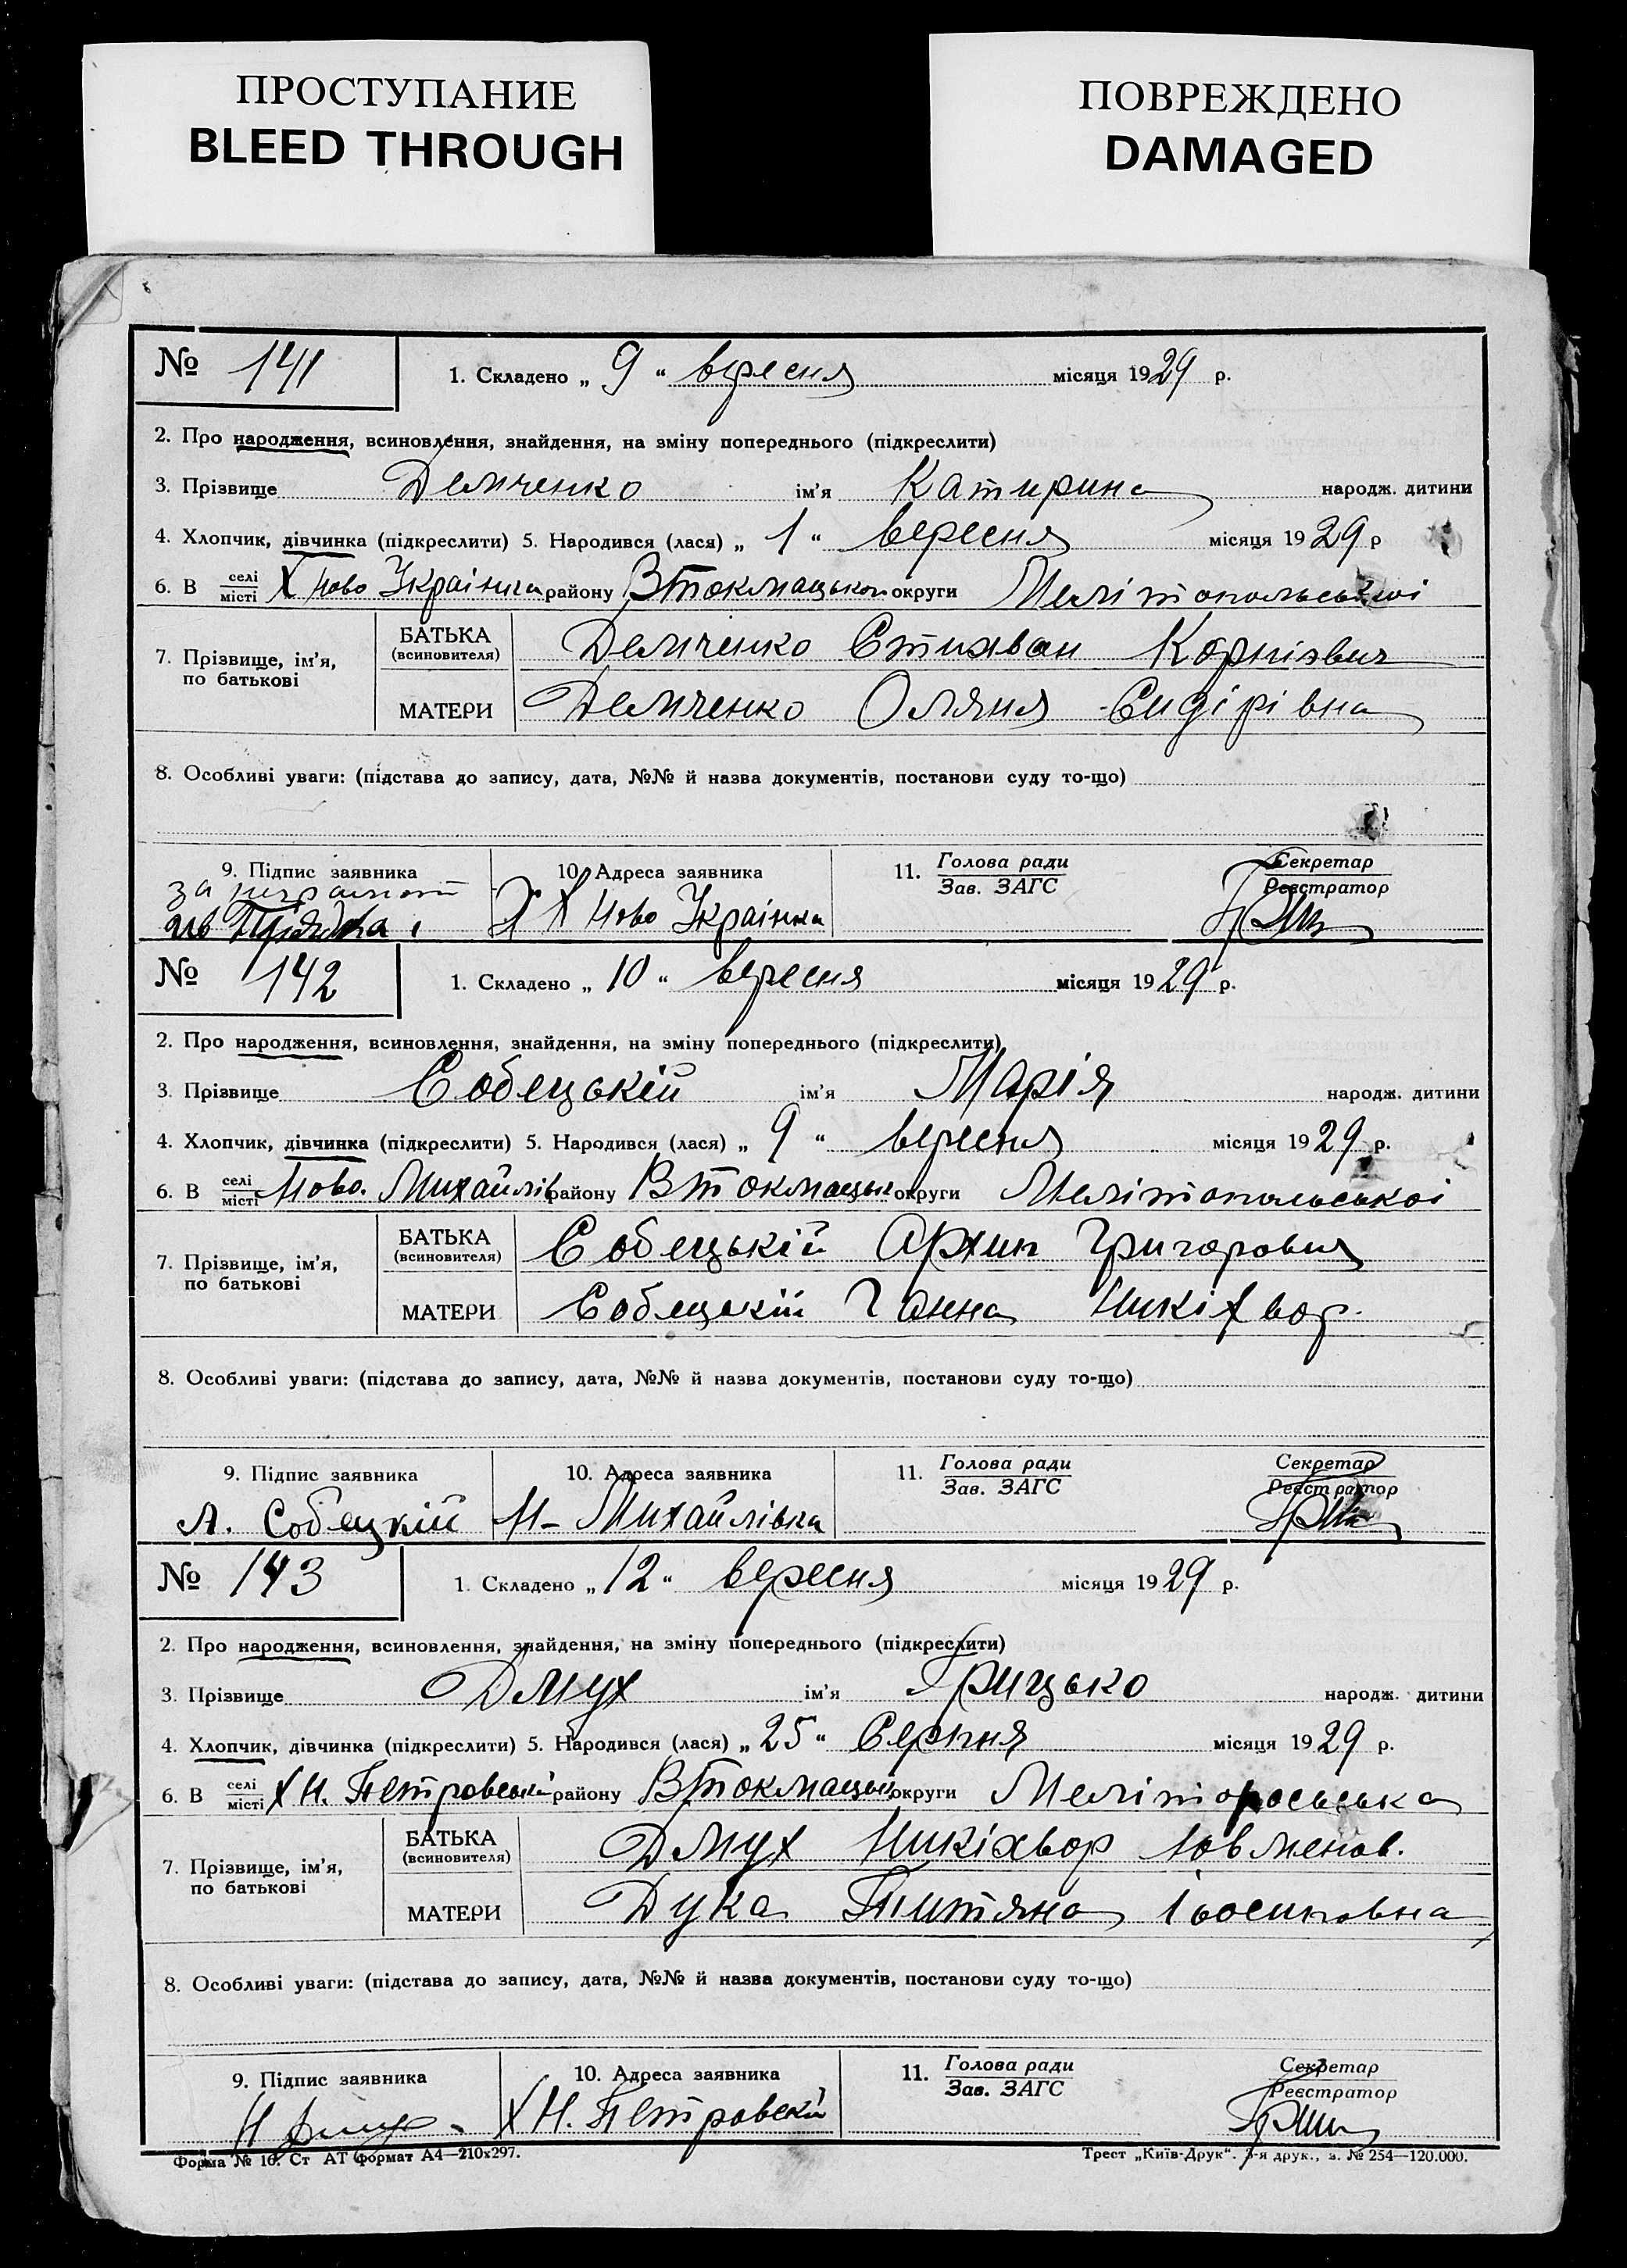 ПРОСТУПАНИЕ
BLEED THROUGH
ПОВРЕЖДЕНО
DAMAGED
№ 141
1. Складено „ 9 “ вересня місяця 1929 р.
2. Про народження, всиновлення, знайдення, на зміну попереднього (підкреслити)
3. Прізвище Демченко ім'я Катирина народж. дитини
4. Хлопчик, дівчинка (підкреслити) 5. Народився (лася) „ 1 “ вересня місяця 1929 р
6. В селі місті Х Ново Украінка району ВТокмацького округи Мелітопольськоі
7. Прізвище, ім'я, по батькові
БАТЬКА (всиновителя) Демченко Стихван Корнієвич
МАТЕРИ Демченко Оляня Сидірівна
8. Особливі уваги: (підстава до запису, дата, №№ й назва документів, постанови суду то-що)
9. Підпис заявника
за
10. Адреса заявника
Х Ново Украінка
11. Голова ради
Зав. ЗАГС
Секретар
Реєстратор
№ 142
1. Складено „ 10 “ вересня місяця 1929 р.
2. Про народження, всиновлення, знайдення, на зміну попереднього (підкреслити)
3. Прізвище Собецькій ім'я Марія народж. дитини
4. Хлопчик, дівчинка (підкреслити) 5. Народився (лася) „ 9 “ вересня місяця 1929 р.
6. В селі місті Ново. Михайлів району ВТокмацьк округи Мелітопольськоі
7. Прізвище, ім'я, по батькові
БАТЬКА (всиновителя) Собецькій Архип Григорович
МАТЕРИ Собецкій Ганна Никіхвор.
8. Особливі уваги: (підстава до запису, дата, №№ й назва документів, постанови суду то-що)
9. Підпис заявника
А. Собецкій
10. Адреса заявника
Н-Михайлівка
11. Голова ради
Зав. ЗАГС
Секретар
Реєстратор
№ 143
1. Складено „ 12 “ вересня місяця 1929 р.
2. Про народження, всиновлення, знайдення, на зміну попереднього (підкреслити)
3. Прізвище Дмух ім'я Грицько народж. дитини
4. Хлопчик, дівчинка (підкреслити) 5. Народився (лася) „ 25 “ Серпня місяця 1929 р.
6. В селі місті Х Н. Петровській району ВТокмацьк округи
7. Прізвище, ім'я, по батькові
БАТЬКА (всиновителя) Дмух Никіхвор Іовменов.
МАТЕРИ Дука Титяна
8. Особливі уваги: (підстава до запису, дата, №№ й назва документів, постанови суду то-що)
9. Підпис заявника
Н
10. Адреса заявника
Х Н. Петровскій
11. Голова ради
Зав. ЗАГС
Секретар
Реєстратор
Форма № 16. Ст АТ формат А4—210x297.
Трест „Київ-Друк“. 3-я друк., з. № 254—120.000.